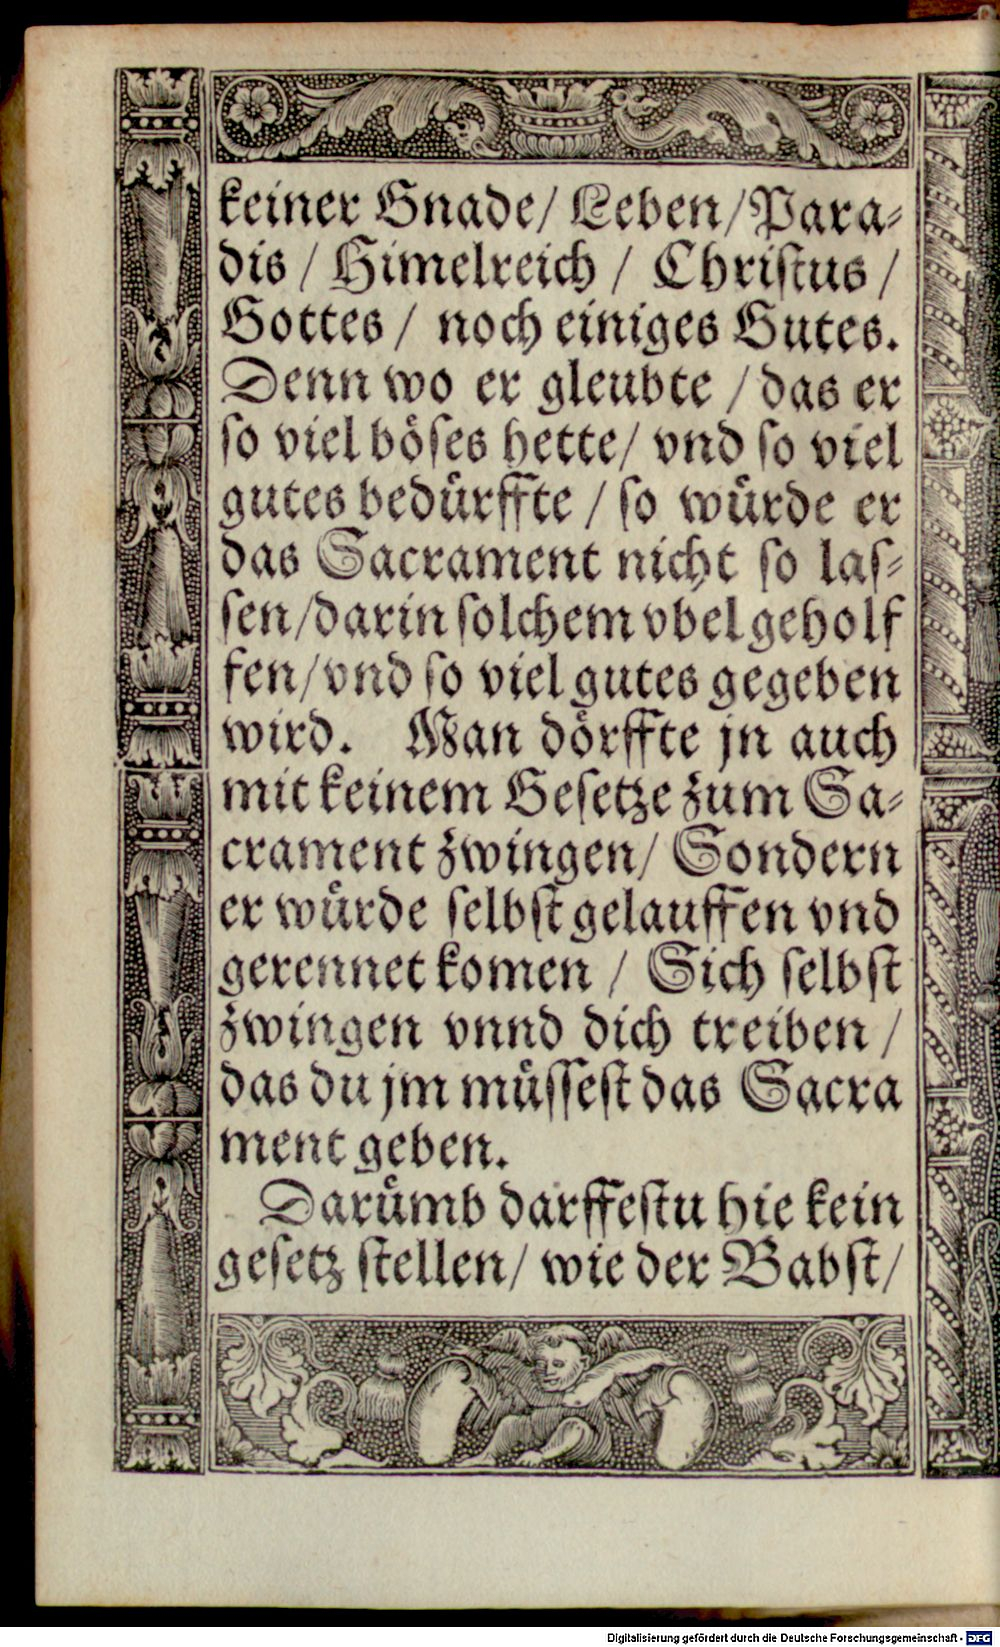 keiner Gnade/ Leben/ Para-
dis / Himelreich / Christus /
Gottes / noch einiges Gutes.
Denn wo er gleubte / das er
so viel böses hette/ vnd so viel
gutes bedürffte / so würde er
das Sacrament nicht so las-
sen/ darin solchem vbel geholf
fen/ vnd so viel gutes gegeben
wird. Man dörffte jn auch
mit keinem Gesetze zum Sa-
crament zwingen/ Sondern
er würde selbst gelauffen vnd
gerennet komen / Sich selbst
zwingen vnnd dich treiben /
das du jm müssest das Sacra
ment geben.
Darümb darffestu hie kein
gesetz stellen/ wie der Babst/
Digitalisierung gefördert durch die Deutsche Forschungsgemeinschaft - DFG